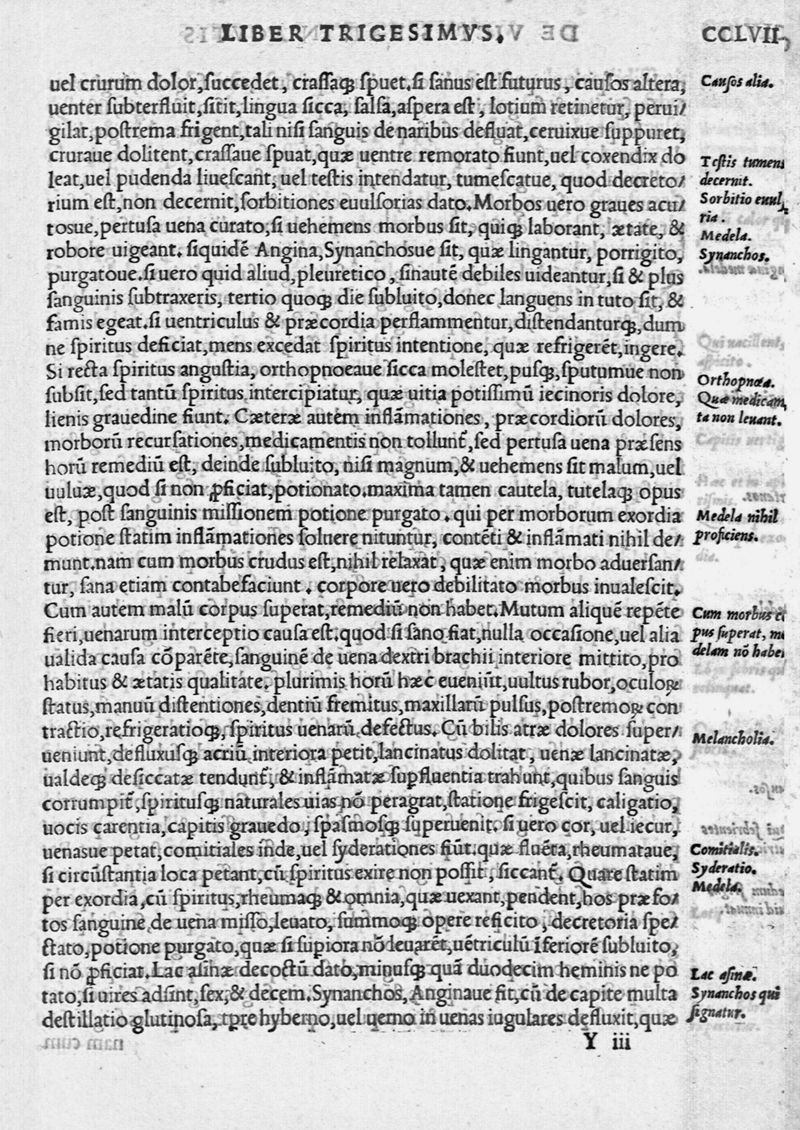 LIBER TRIGESIMVS.
CCLVII
uel crurum dolor, succedet, crassaq; spuet. si sanus est futurus, causos altera,
uenter subterfluit, sitit, lingua sicca, salsa, aspera est, lotium retinetur, perui/
gilat, postrema frigent, tali nisi sanguis de naribus defluat, ceruixue suppuret,
cruraue dolitent, crassaue spuat, quæ uentre remorato fiunt, uel coxendix do
leat, uel pudenda liuescant, uel testis intendatur, tumescatue, quod decreto/
rium est, non decernit, sorbitiones euulsorias dato. Morbos uero graues acu/
tosue, pertusa uena curato, si uehemens morbus sit, quiq; laborant, ætate, &
robore uigeant. siquidē Angina, Synanchosue sit, quæ lingantur, porrigito,
purgatoue. si uero quid aliud, pleuretico, sinautē debiles uideantur, si & plus
sanguinis subtraxeris, tertio quoq; die subluito, donec languens in tuto sit, &
famis egeat. si uentriculus & præcordia perflammentur, distendanturq;, dum
ne spiritus deficiat, mens excedat spiritus intentione, quæ refrigerēt, ingere.
Si recta spiritus angustia, orthopnoeaue sicca molestet, pusq;, sputumue non
subsit, sed tantū spiritus intercipiatur, quæ uitia potissimū iecinoris dolore,
lienis grauedine fiunt. Cæteræ autem inflāmationes, præcordiorū dolores,
morborū recursationes, medicamentis non tollunt̄, sed pertusa uena præsens
horū remediū est, deinde subluito, nisi magnum, & uehemens sit malum, uel
uuluæ, quod si non ꝓficiat, potionato. maxima tamen cautela, tutelaq; opus
est, post sanguinis missionem potione purgato. qui per morborum exordia
potione statim inflāmationes soluere nituntur, contēti & inflāmati nihil de/
munt. nam cum morbus crudus est, nihil relaxat, quæ enim morbo aduersan/
tur, sana etiam contabefaciunt. corpore uero debilitato morbus inualescit.
Cum autem malū corpus superat, remediū non habet. Mutum aliquē repēte
fieri, uenarum interceptio causa est. quod si sano fiat, nulla occasione, uel alia
ualida causa cōparēte, sanguinē de uena dextri brachii interiore mittito, pro
habitus & ætatis qualitate. plurimis horū hæc eueniūt, uultus rubor, oculoꝝ
status, manuū distentiones, dentiū fremitus, maxillarū pulsus, postremoꝝ con
tractio, refrigeratioq;, spiritus uenarū defectus. Cū bilis atræ dolores super/
ueniunt, defluxusq; acriū interiora petit, lancinatus dolitat, uenæ lancinatæ,
ualdeq; desiccatæ tendunt̄, & inflāmatæ supfluentia trahunt, quibus sanguis
corrumpit̄, spiritusq; naturales uias nō peragrat, statione frigescit, caligatio,
uocis carentia, capitis grauedo, spasmosq; superuenit. si uero cor, uel iecur,
uenasue petat, comitiales inde, uel syderationes fiūt. quæ fluēta, rheumataue,
si circūstantia loca petant, cū spiritus exire non possit, siccant̄. Quare statim
per exordia, cū spiritus, rheumaq; & omnia, quæ uexant, pendent, hos præfo/
tos sanguine de uena misso, leuato, summoq; opere reficito, decretoria spe/
ctato, potione purgato, quæ si supiora nō leuarēt, uētriculū īferiorē subluito,
si nō ꝓficiat. Lac asinæ decoctū dato, minusq; quā duodecim heminis ne po
tato, si uires adsint, sex, & decem. Synanchos, Anginaue fit, cū de capite multa
destillatio glutinosa, tp̄re hyberno, uel uerno in uenas iugulares defluxit, quæ
Y iii
Causos alia.
Testis tumens
decernit.
Sorbitio euul/
ria.
Medela.
Synanchos.
Orthopnœa.
Quæ medicam
ta non leuant.
Medela nihil
proficiens.
Cum morbus
pus superat,
delam nō habe
Melancholia.
Comitialis.
Syderatio.
Medela.
Lac asinæ.
Synanchos qui
signatur.